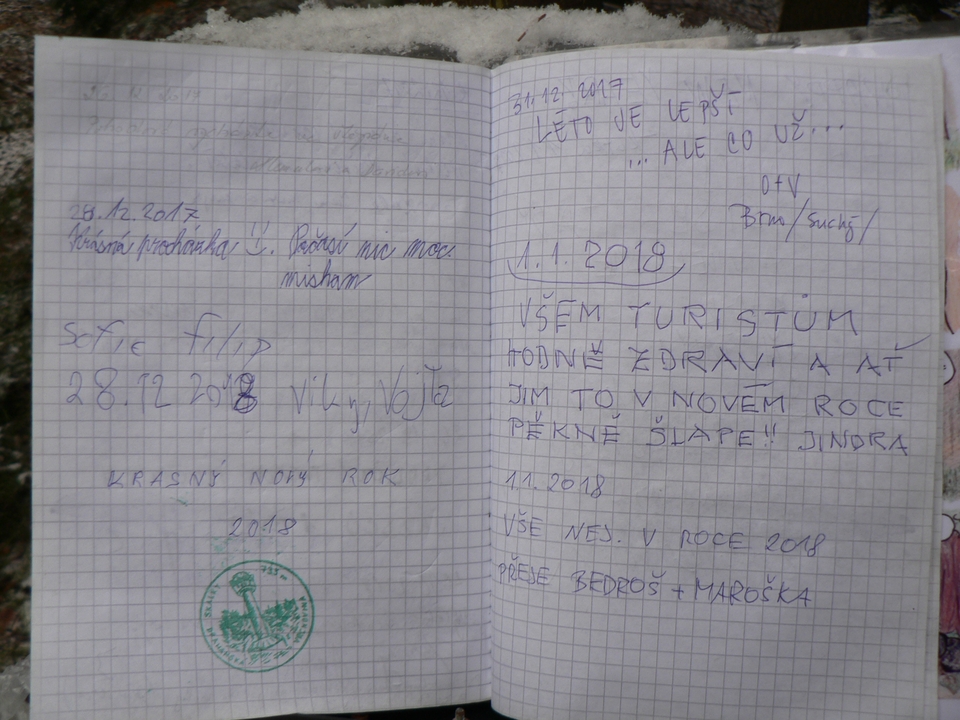 28.12.2017
Krásná procházka !. Počasí nic moc.
Sofie Filip
28.12 2018 Viky, Vojta
KRASNÝ NOVÝ ROK
2018
735 m
31.12 2017
LÉTO JE LEPŠÍ
... ALE CO UŽ...
O+V
Brno/Suchý/
1.1. 2018
VŠEM TURISTŮM
HODNĚ ZDRAVÍ A AŤ
JIM TO V NOVÉM ROCE
PĚKNĚ ŠLAPE!! JINDRA
1.1. 2018
VŠE NEJ. V ROCE 2018
PŘEJE BEDROŠ + MAROŠKA